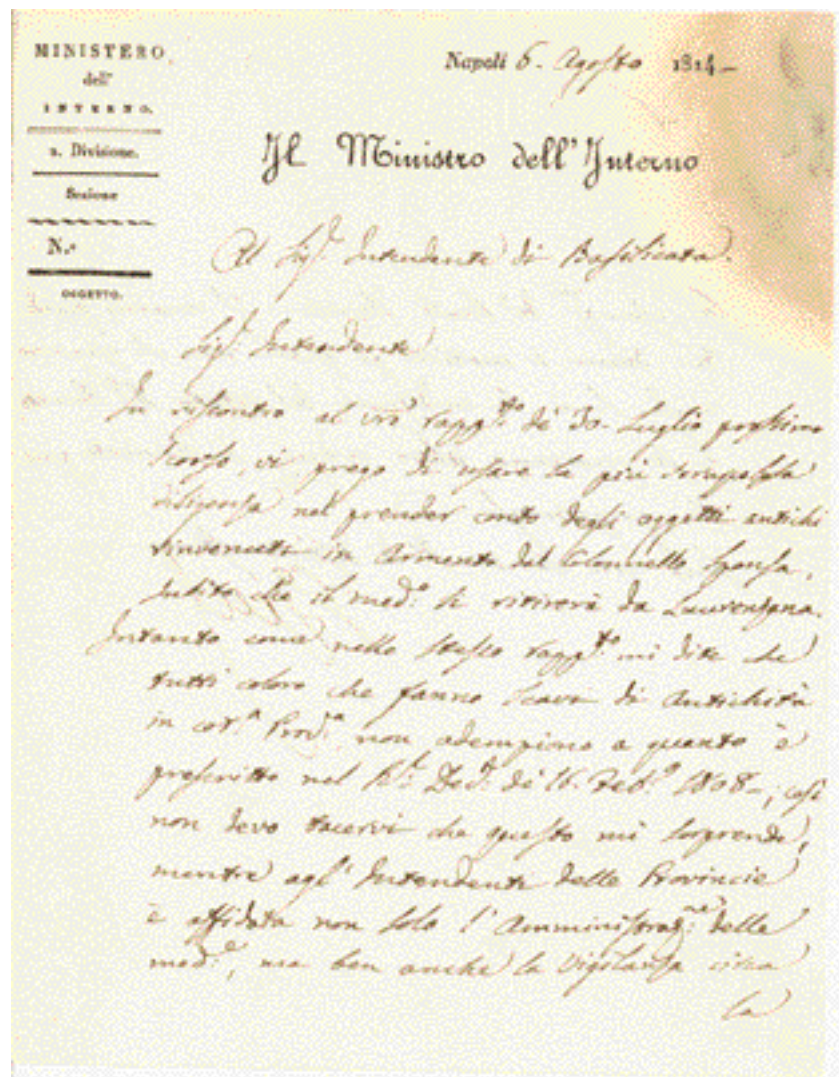 MINISTERO
dell'
INTERNO.
2. Divisione.
Sezione
N.º
OGGETTO.
Napoli 6. Agosto 1814 –
Il Ministro dell'Interno
Al Sig.r Intendente di Basilicata.
Sig.r Intendente
In riscontro al vro rapp.to de' 30. Luglio prossimo
scorso, vi prego di usare la più scrupolosa
diligenza nel prender conto degli oggetti antichi
rinvenuti in Armento dal Colonnello Sponsa,
subito che il med.o si ritirerà da Laurenzana.
Intanto come nello stesso rapp.to mi dite che
tutti coloro che fanno scavi di Antichità
in cot.a Prov.a non adempiono a quanto è
prescritto nel R.l Dec.o de' 16. Feb.o 1808 –, così
non devo tacervi che questo mi sorprende,
mentre agl'Intendenti delle Provincie
è affidata non solo l'Amministraz.ne delle
med.e, ma ben anche la vigilanza circa
la